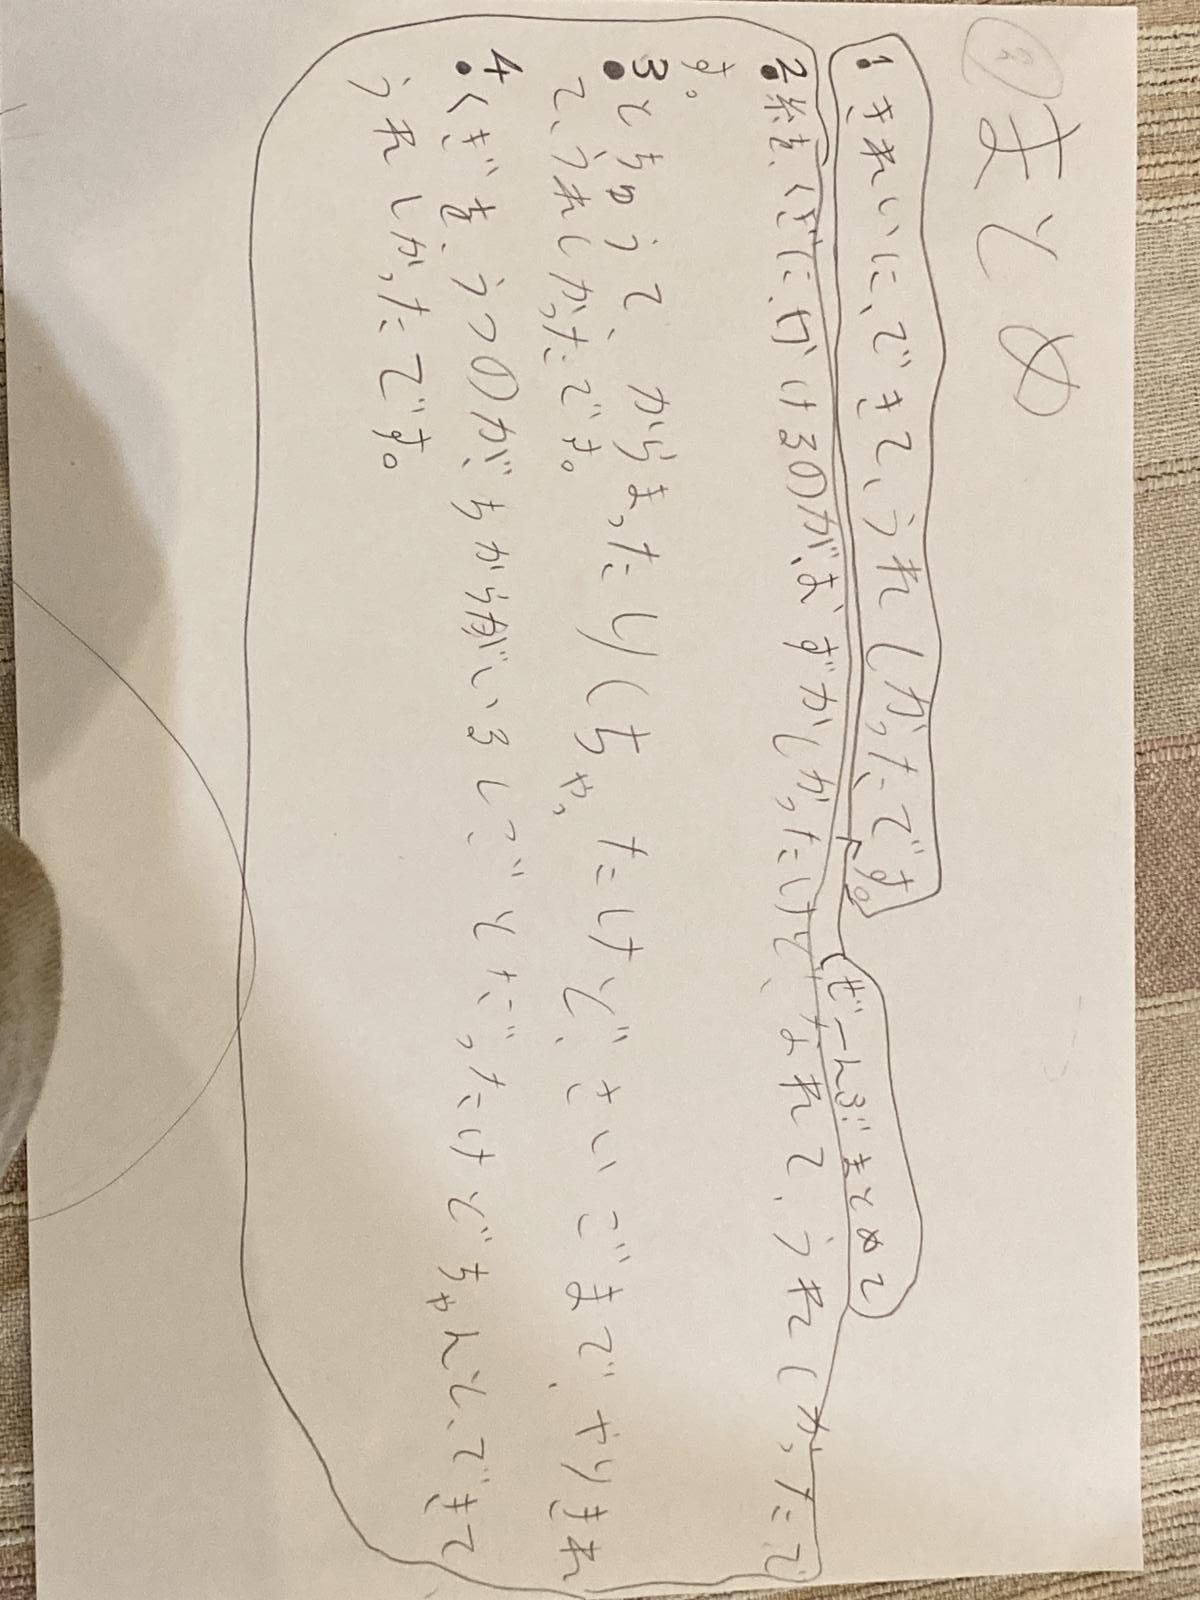 まとめ
1.きれいに、できて、うれしかったです。
ぜーんぶまとめて
2.糸を、くぎに、かけるのが、むずかしかったけど、なれて、うれしかったで
す。
3.とちゅうで、からまったりしちゃったけど、さいごまで、やりきれ
て、うれしかったです。
4.くぎを、うつのがちからがいるしごとだったけどちゃんと、できて
うれしかったです。